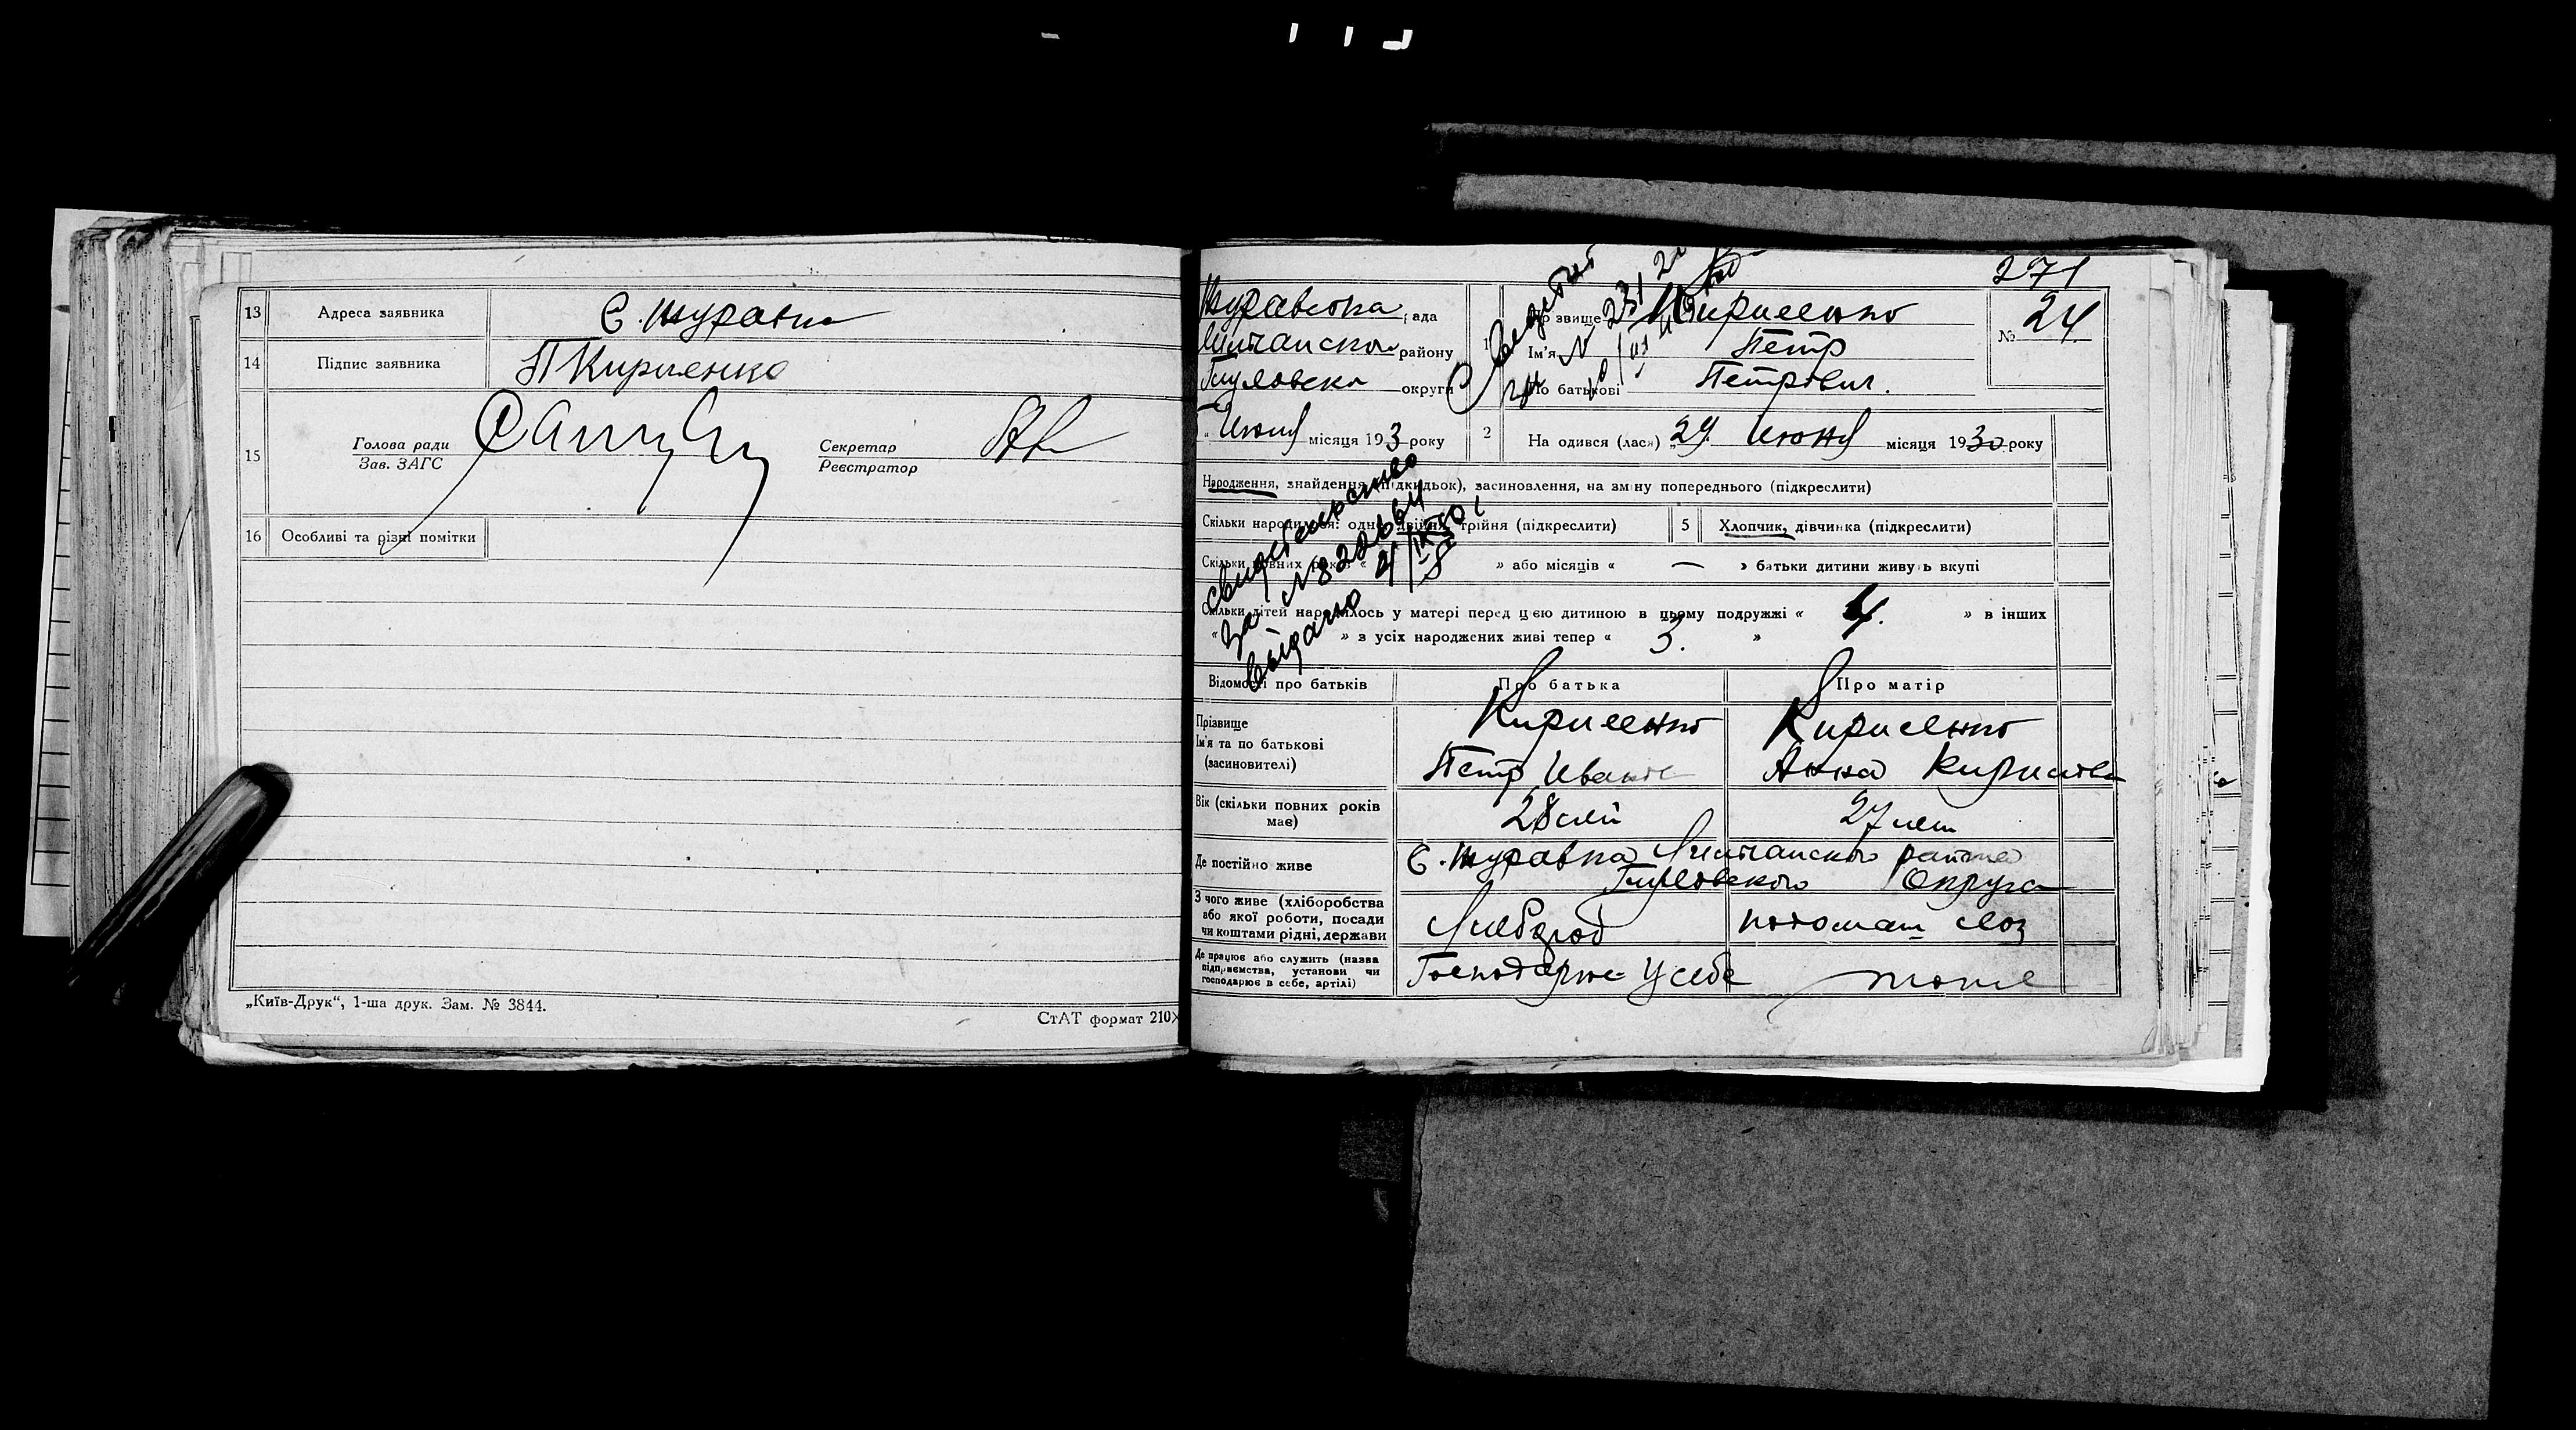 13 Адреса заявника С. Журавка
14 Підпис заявника П Кириленко
15 Голова ради Зав. ЗАГС Секретар Реєстратор
16 Особливі та різні помітки
„Київ-Друк“, 1-ша друк. Зам. № 3844.
СтАТ формат 210
271
рада
району
округи
Кириленко
№ 24
Ім'я Петр
По батькові Петрович.
місяця 193 року
2 На одився (лася) 29 Июня місяця 1930 року
Народження, знайдення (підкидьок), засиновлення, на зміну попереднього (підкреслити)
Скільки народилося: одно, двійня, трійня (підкреслити) 5 Хлопчик, дівчинка (підкреслити)
Скільки повних років « » або місяців « — » батьки дитини живуть вкупі
Скільки дітей народилось у матері перед цією дитиною в цьому подружжі « 4. » в інших
« » в усіх народжених живі тепер « 3. »
свидетельство
за №
выдано
Відомості про батьків Про батька Про матір
Прізвище Кириленко Кириленко
Ім'я та по батькові
(засиновителі) Петр Иванов Анна Кирилов
Вік (скільки повних років має) 28 лет 27 лет
Де постійно живе С. Журавка района
Глуховского Округа
З чого живе (хліборобства
або якої роботи, посади
чи коштами рідні, держави Хлебороб
Де працює або служить (назва
підприємства, установи чи
господарює в себе, артілі) Господарює У себе тоже